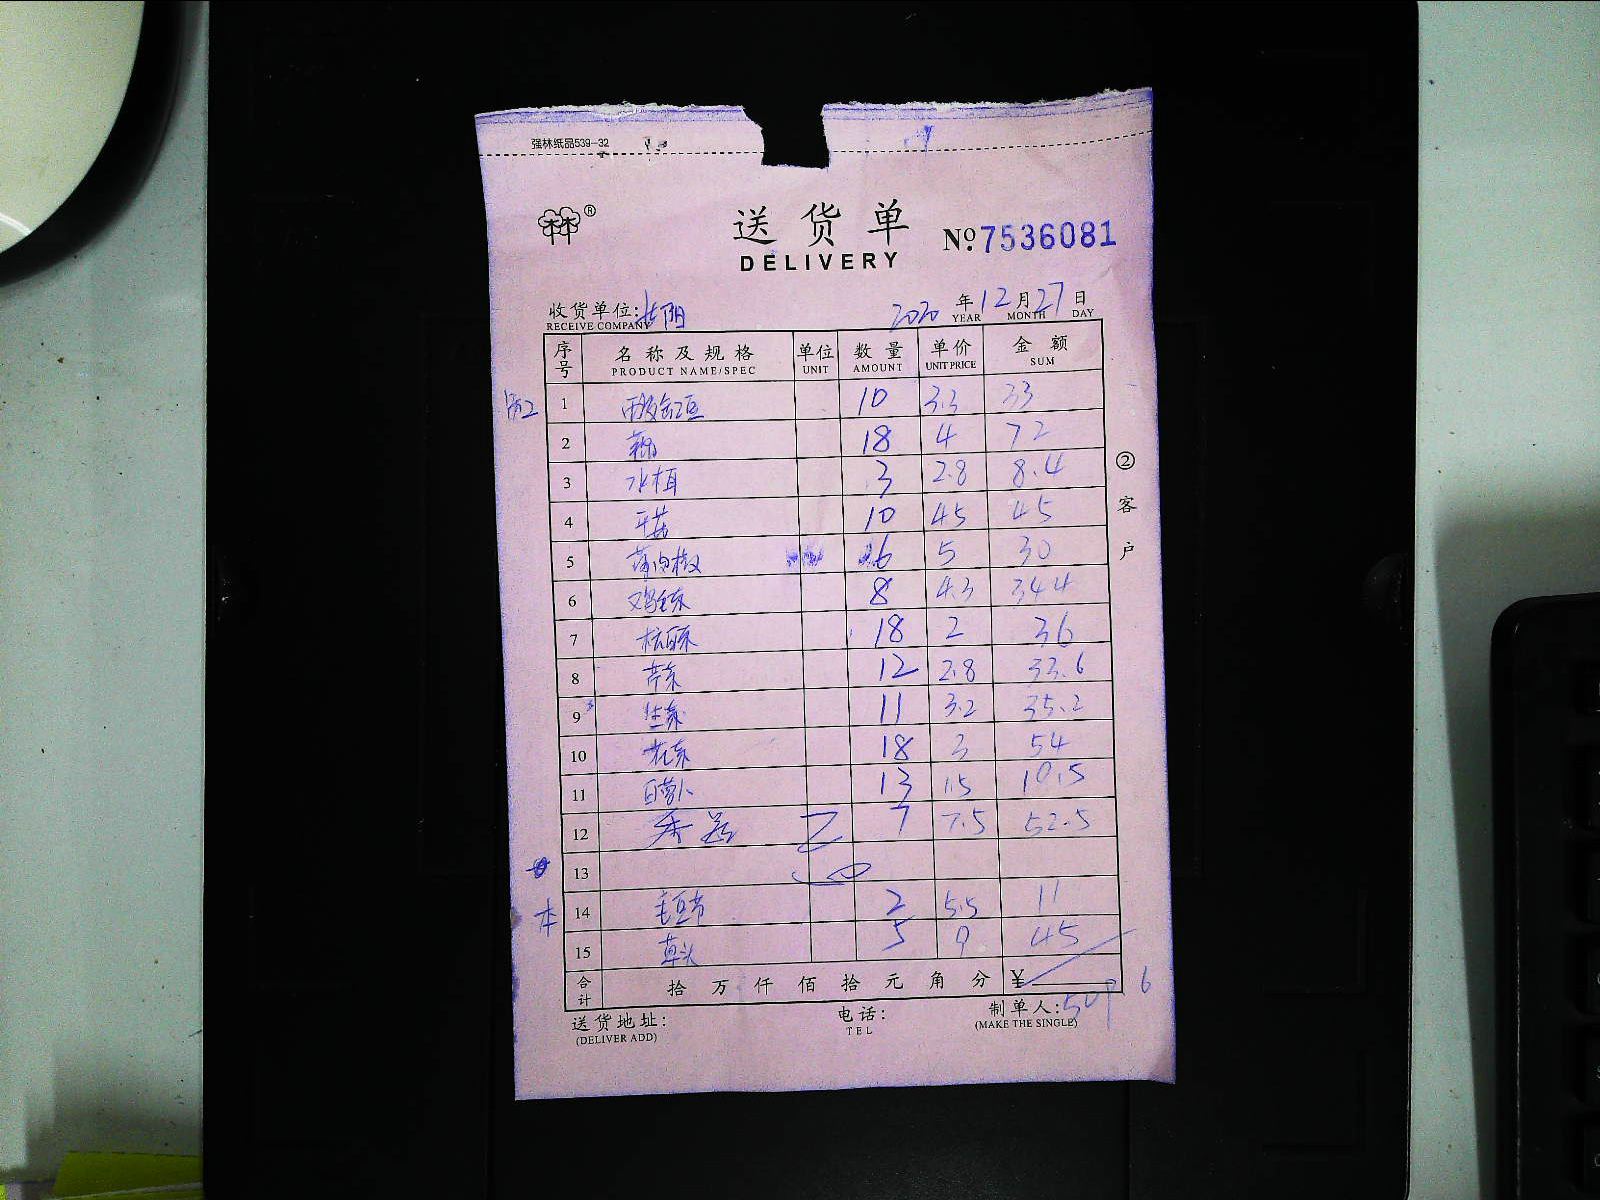 强林纸品539-32
林®
送货单
DELIVERY
Nº.7536081
收货单位:
RECEIVE COMPANY
2020年12月27日
YEAR MONTH DAY
序号 名称及规格 单位 数量 单价 金额
PRODUCT NAME/SPEC UNIT AMOUNT UNIT PRICE SUM
1 10 3.3 33
2 18 4 72
3 水 3 2.8 8.4
4 10 4.5 45
5 6 5 30
6 鸡毛菜 8 4.3 34.4
7 18 2 36
8 芹菜 12 2.8 33.6
9 生菜 11 3.2 35.2
10 花菜 18 3 54
11 白萝卜 13 1.5 10.5
12 7 7.5 52.5
13
14 毛豆节 2 5.5 11
15 草头 5 9 45
合计 拾万仟佰拾元角分 ¥
②客户
送货地址:
(DELIVER ADD)
电话:
TEL
制单人:
(MAKE THE SINGLE)